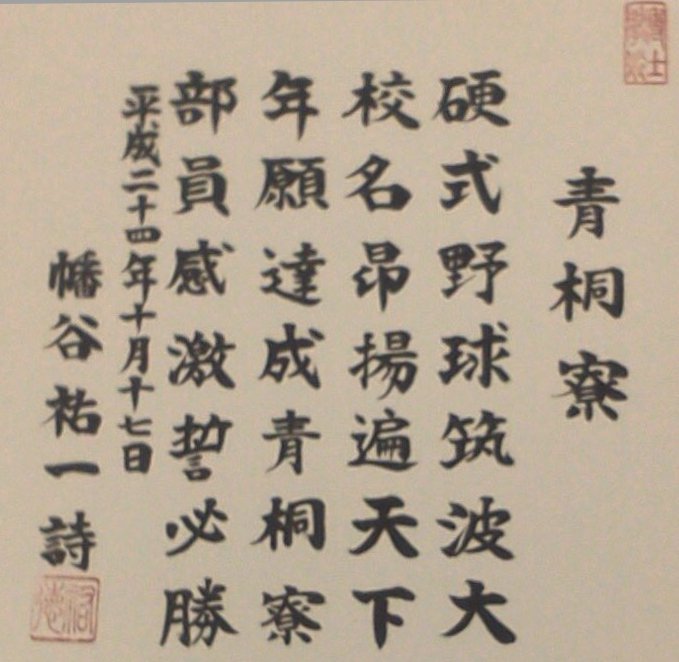 青桐寮
硬式野球筑波大
校名昂揚遍天下
年願達成青桐寮
部員感激誓必勝
平成二十四年十月十七日
幡谷祐一詩